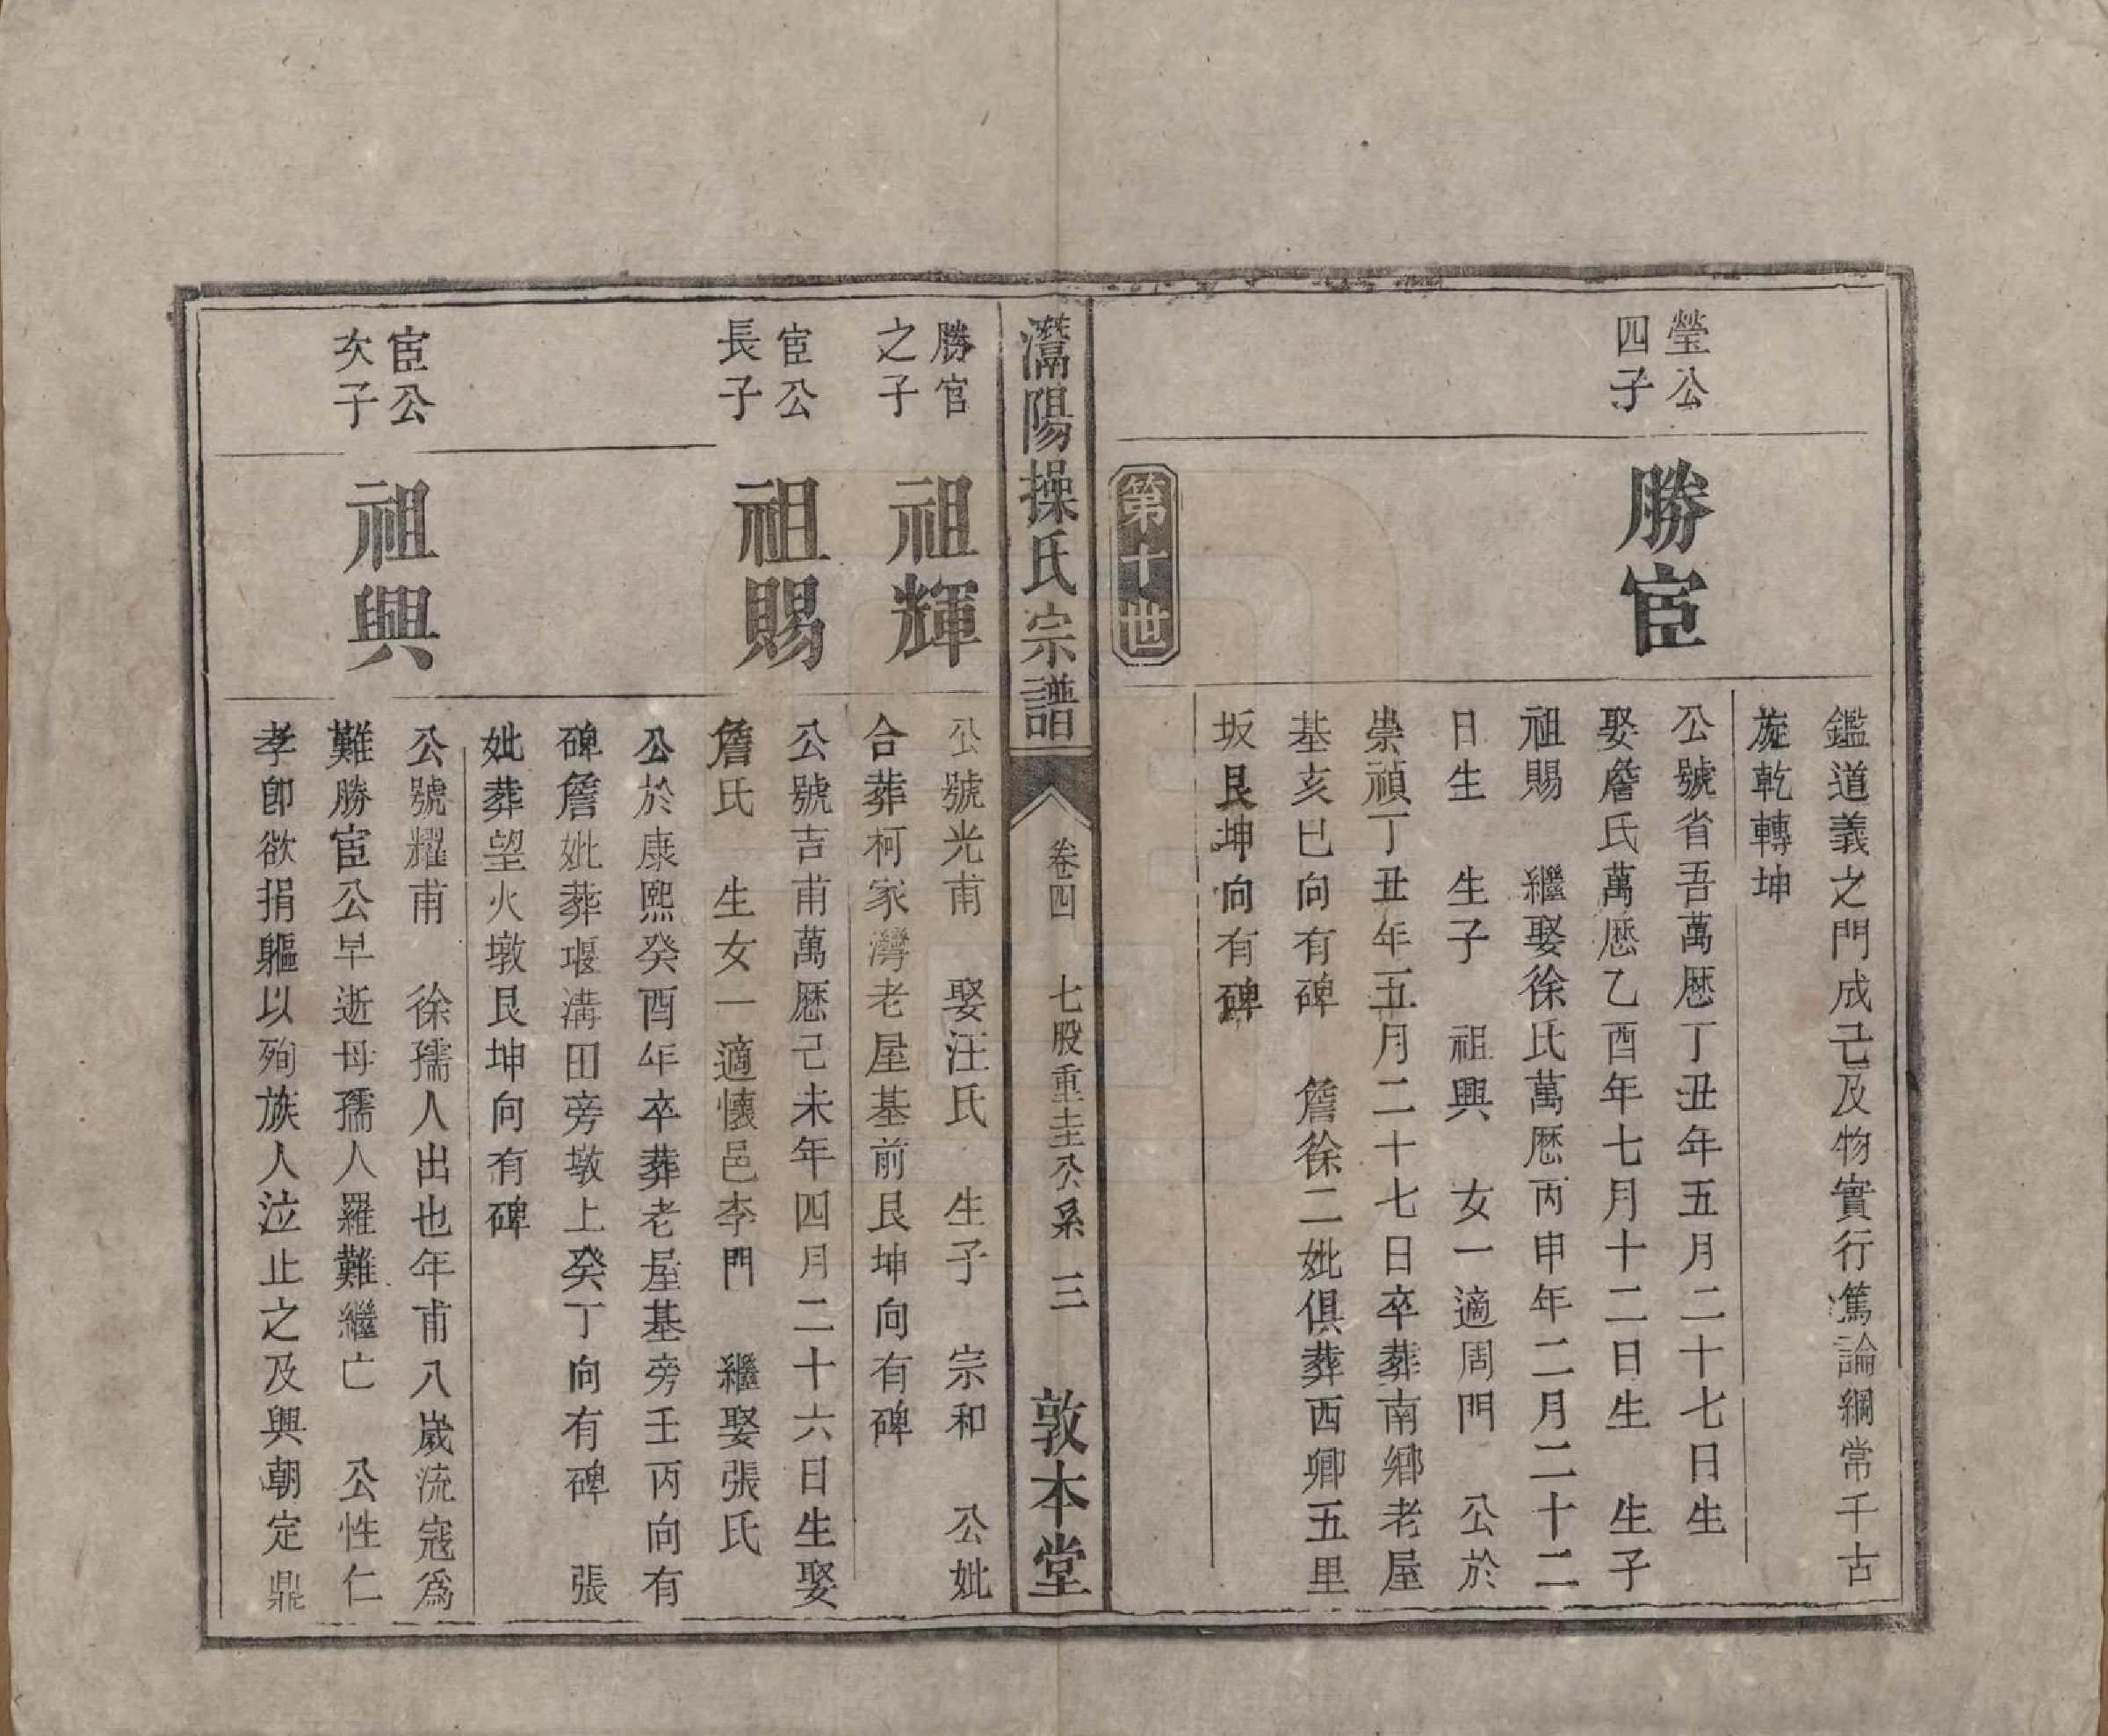 鑑道義之門成己及物實行篤論綱常千古
旋乾轉坤
瑩公
四子
勝宦
公號省吾萬歷丁丑年五月二十七日生
娶詹氏萬歷乙酉年七月十二日生　生子
祖賜　繼娶徐氏萬歷丙申年二月二十二
日生　生子　祖興　女一適周門　公於
崇禎丁丑年五月二十七日卒葬南鄉老屋
基亥巳向有碑　詹徐二妣俱葬西鄉五里
坂艮坤向有碑
第十世
灊陽操氏宗譜
卷四　七股重圭公系　三
敦本堂
勝官
之子
祖輝
公號光甫　娶汪氏　生子　宗和　公妣
合葬柯家灣老屋基前艮坤向有碑
宦公
長子
祖賜
公號吉甫萬歷己未年四月二十六日生娶
詹氏　生女一適懷邑李門　繼娶張氏
公於康熙癸酉年卒葬老屋基旁壬丙向有
碑詹妣葬堰溝田旁墩上癸丁向有碑　張
妣葬望火墩艮坤向有碑
宦公
次子
祖興
公號耀甫　徐孺人出也年甫八歲流寇爲
難勝宦公早逝母孺人羅難繼亡　公性仁
孝卽欲捐軀以殉族人泣止之及興朝定鼎